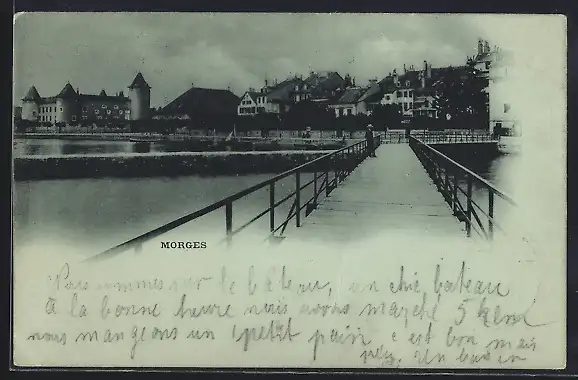 MORGES
sommes sur le bâteau, un chic bateau
à la bonne heure nous avons marché 5 kem
nous mangeons un petit pain c'est bon mais
un